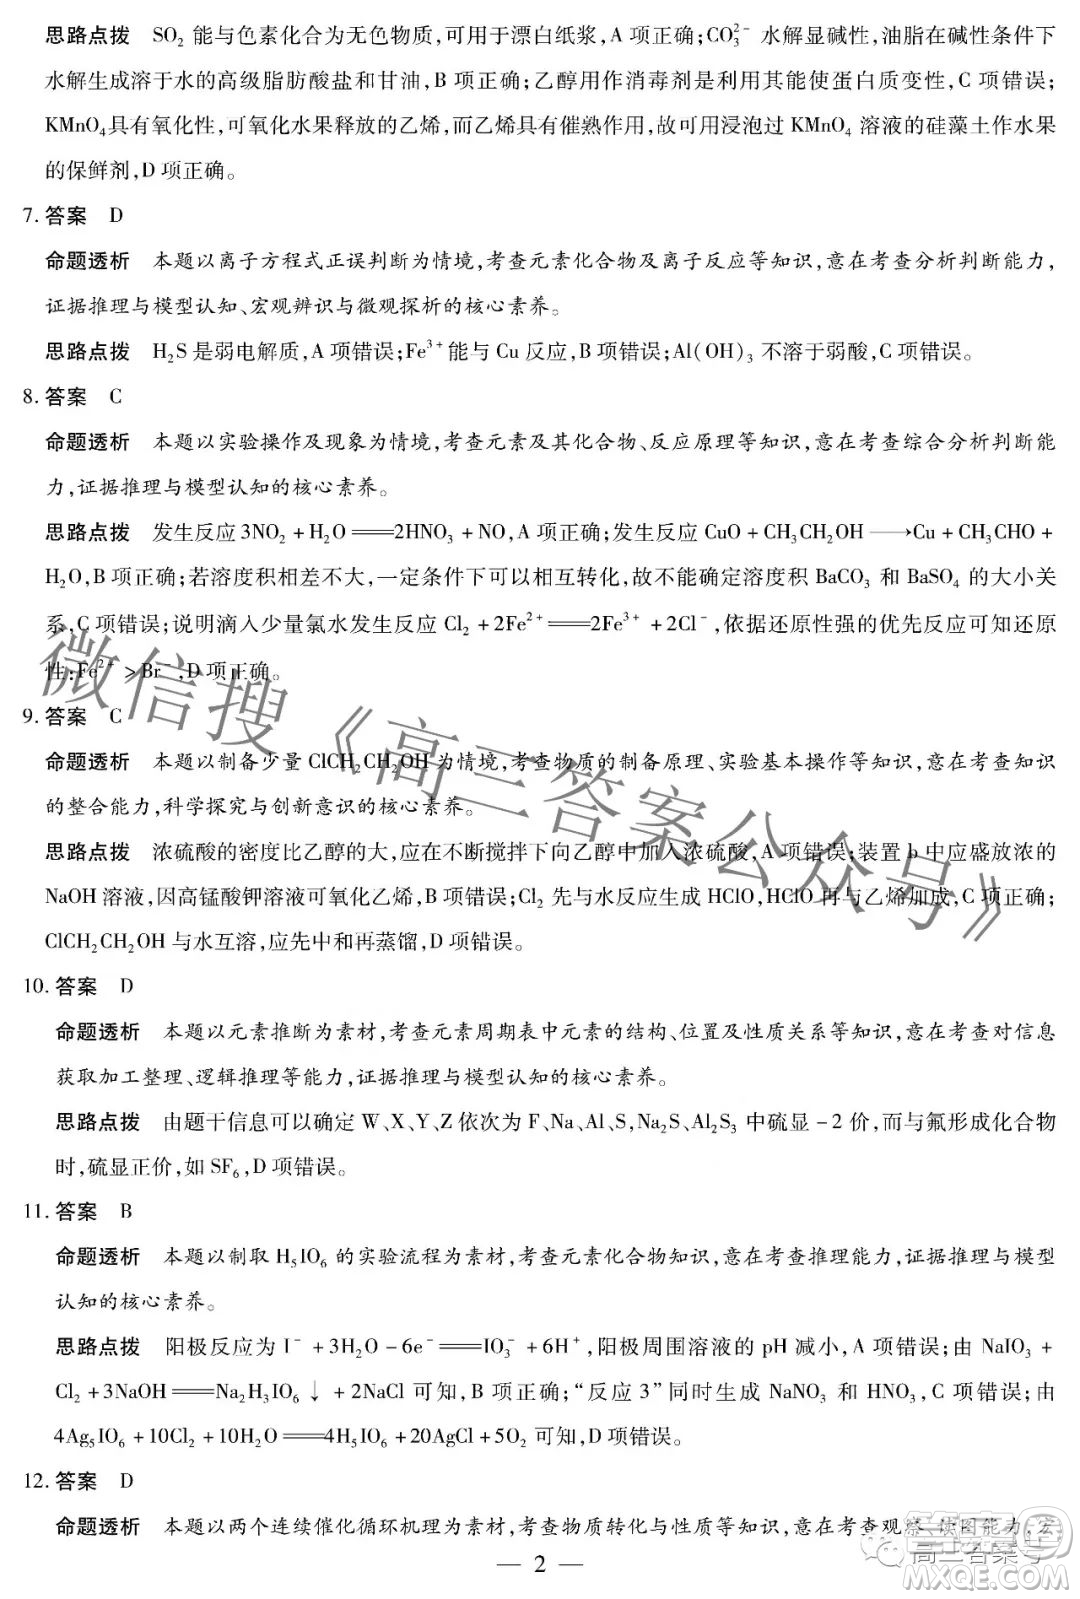 思路点拨 SO₂ 能与色素化合为无色物质,可用于漂白纸浆,A 项正确;CO₃²⁻ 水解显碱性,油脂在碱性条件下
水解生成溶于水的高级脂肪酸盐和甘油,B 项正确;乙醇用作消毒剂是利用其能使蛋白质变性,C 项错误;
KMnO₄具有氧化性,可氧化水果释放的乙烯,而乙烯具有催熟作用,故可用浸泡过 KMnO₄ 溶液的硅藻土作水果
的保鲜剂,D 项正确。
7. 答案 D
命题透析 本题以离子方程式正误判断为情境,考查元素化合物及离子反应等知识,意在考查分析判断能力,
证据推理与模型认知、宏观辨识与微观探析的核心素养。
思路点拨 H₂S 是弱电解质,A 项错误;Fe³⁺能与 Cu 反应,B 项错误;Al(OH)₃ 不溶于弱酸,C 项错误。
8. 答案 C
命题透析 本题以实验操作及现象为情境,考查元素及其化合物、反应原理等知识,意在考查综合分析判断能
力,证据推理与模型认知的核心素养。
思路点拨 发生反应3NO₂ + H₂O ══ 2HNO₃ + NO,A 项正确;发生反应 CuO + CH₃CH₂OH ⟶ Cu + CH₃CHO +
H₂O,B 项正确;若溶度积相差不大,一定条件下可以相互转化,故不能确定溶度积 BaCO₃ 和 BaSO₄ 的大小关
系,C 项错误;说明滴入少量氯水发生反应 Cl₂ + 2Fe²⁺ ══ 2Fe³⁺ + 2Cl⁻,依据还原性强的优先反应可知还原
性:Fe²⁺ > Br⁻,D 项正确。
9. 答案 C
命题透析 本题以制备少量 ClCH₂CH₂OH 为情境,考查物质的制备原理、实验基本操作等知识,意在考查知识
的整合能力,科学探究与创新意识的核心素养。
思路点拨 浓硫酸的密度比乙醇的大,应在不断搅拌下向乙醇中加入浓硫酸,A 项错误;装置 b 中应盛放浓的
NaOH 溶液,因高锰酸钾溶液可氧化乙烯,B 项错误;Cl₂ 先与水反应生成 HClO,HClO 再与乙烯加成,C 项正确;
ClCH₂CH₂OH 与水互溶,应先中和再蒸馏,D 项错误。
10. 答案 D
命题透析 本题以元素推断为素材,考查元素周期表中元素的结构、位置及性质关系等知识,意在考查对信息
获取加工整理、逻辑推理等能力,证据推理与模型认知的核心素养。
思路点拨 由题干信息可以确定 W、X、Y、Z 依次为 F、Na、Al、S,Na₂S、Al₂S₃ 中硫显 -2 价,而与氟形成化合物
时,硫显正价,如 SF₆,D 项错误。
11. 答案 B
命题透析 本题以制取 H₅IO₆ 的实验流程为素材,考查元素化合物知识,意在考查推理能力,证据推理与模型
认知的核心素养。
思路点拨 阳极反应为 I⁻ + 3H₂O - 6e⁻ ══ IO₃⁻ + 6H⁺,阳极周围溶液的 pH 减小,A 项错误;由 NaIO₃ +
Cl₂ + 3NaOH ══ Na₂H₃IO₆↓ + 2NaCl 可知,B 项正确;“反应 3”同时生成 NaNO₃ 和 HNO₃,C 项错误;由
4Ag₅IO₆ + 10Cl₂ + 10H₂O ══ 4H₅IO₆ + 20AgCl + 5O₂ 可知,D 项错误。
12. 答案 D
命题透析 本题以两个连续催化循环机理为素材,考查物质转化与性质等知识,意在考查观察 读图能力,宏
— 2 —
微信搜《高三答案公众号》
高三答案号
答案圈
MXQE.COM